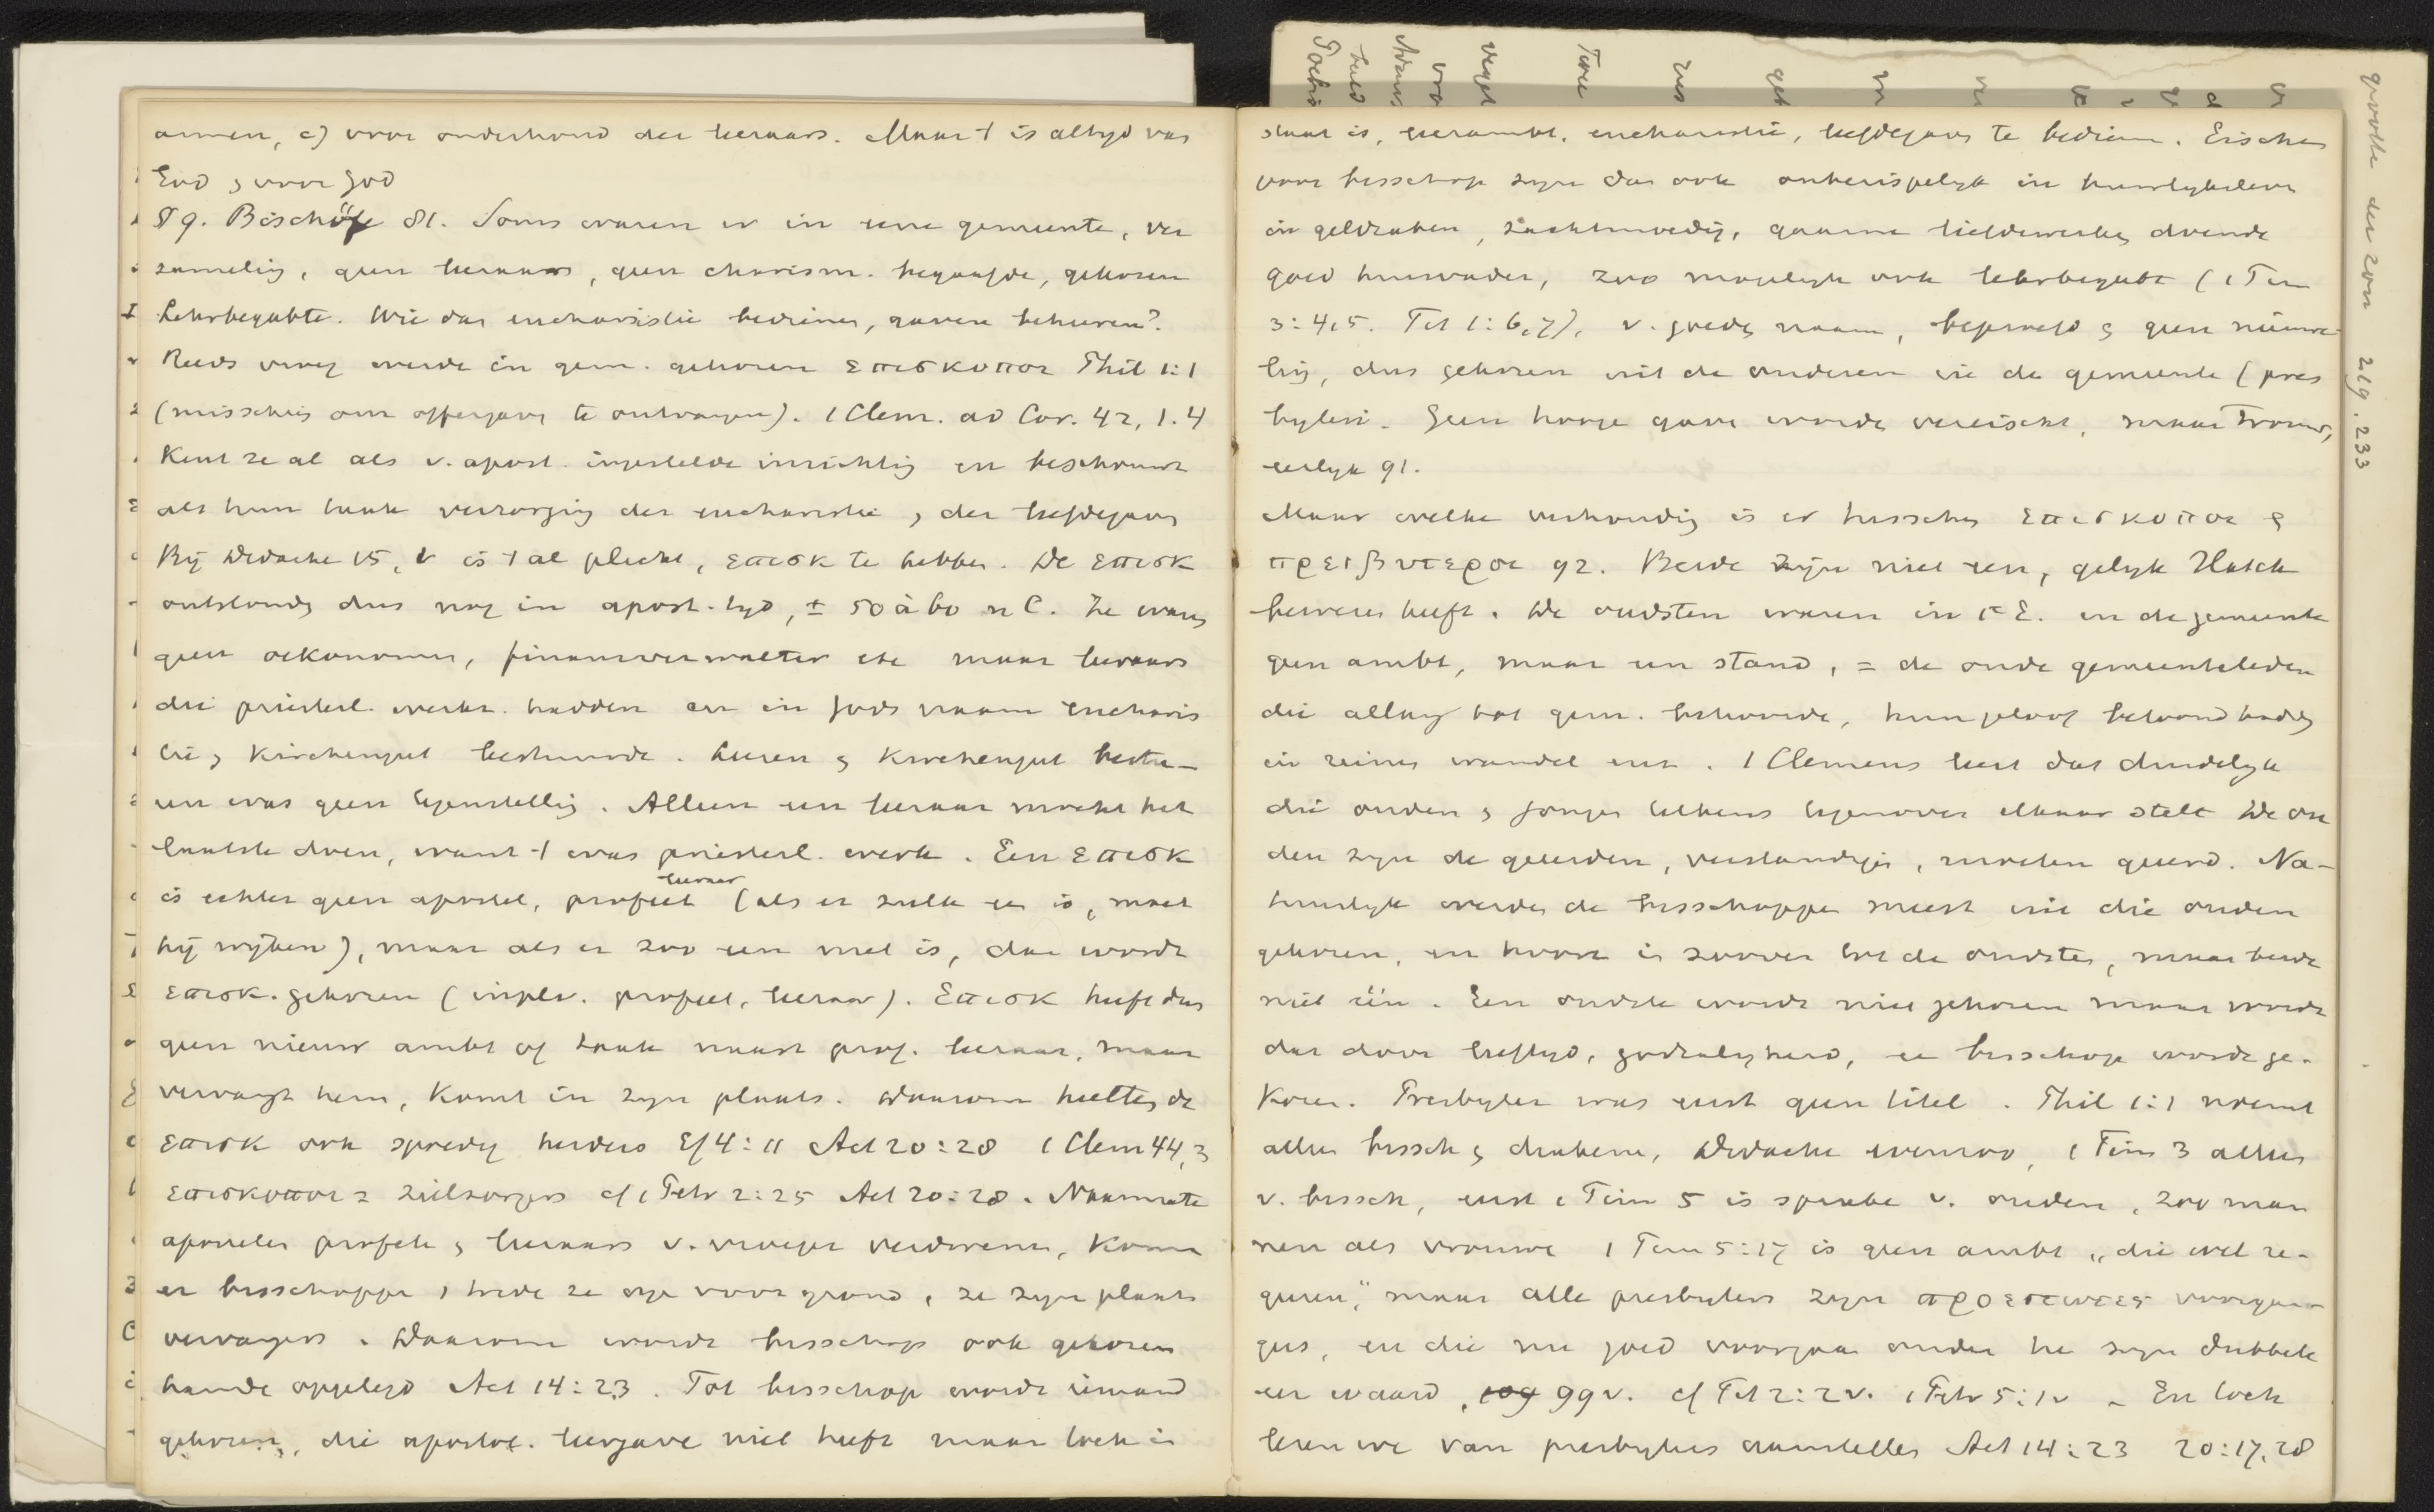 armen, c) voor onderhoud der leeraars. Maar 't is altijd van
God & voor God
§ 9. Bischöfe 81. Soms waren er in eene gemeente, ver
zameling, geen leeraars, geen charism. begaafde, gekozen
Lehrbegabte. Wie dan eucharistie bedienen, gaven beheeren?
Reeds vroeg werde in gem. gekozen επισκοποι Phil 1:1
(misschien om offergaven te ontvangen). 1 Clem. ad Cor. 42, 1.4
Kent ze al als v. apost. ingestelde inrichting en beschouwt
als hun taak verzorging der eucharistie & der liefdegaven
Bij Didache 15, 1 is 't al plicht, επισκ te hebben. De επισκ
ontstonden dus nog in apost. tyd, ± 50 à 60 n C. Ze waren
geen oekonomen, finanzverwalter etc maar leeraars
die priesterl. werkz. hadden en in Gods naam eucharis
tie & Kirchengut bestuurde. Leeren & Kirchengut bestu-
ren was geen tegenstelling. Alleen een leeraar mocht het
laatste doen, want 't was priesterl. werk. Een επισκ
is echter geen apostel, profeet leeraar (als er zulk een is, moet
hij wijken), maar als er zoo een niet is, dan wordt
επισκ. gekozen (in plv. profeet, leeraar). Επισκ heeft dus
geen nieuw ambt of taak naast prof. leeraar, maar
vervangt hem, komt in zijn plaats. Daarom heetten de
επισκ ook spoedig herders Ef 4:11 Act 20:28 1 Clem 44,3
επισκοποι = zielzorgers cf 1 Petr 2:25 Act 20:28. Naarmate
apostelen profete & leeraars v. vroeger verdwenen, kome
er bisschoppe & trede ze op voorgrond, ze zijn plaats
vervangers. Daarom wordt bisschop ook gekozen
hande opgelegd Act 14:23. Tot bisschop wordt iemand
gekozen, die apostol. leergave niet heeft maar toch in
staat is, leerambt, eucharistie, liefdegaven te bedienen. Eischen
voor bisschop zijn dan ook onberispelijk in huwelijksleven
in geldzaken, zachtmoedig, gaarne liefdewerken doende
goed huisvader, zoo mogelijk ook lehrbegabt (1 Tim
3:4,5. Tit 1:6,7), v. goeden naam, beproefd & geen nieuwe
ling, dus gekozen uit de ouderen in de gemeente (pres
byteri. Geen hooge gave wordt vereischt, maar trouw,
eerlijk 91.
Maar welke verhouding is er tusschen επισκοποι &
πρεσβυτεροι 92. Beide zijn niet een, gelijk Hatch
bewezen heeft. De oudsten waren in 1e E. in de gemeente
geen ambt, maar een stand, = de oude gemeenteleden
die allang tot gem. behoorde, hun geloof betoond hadden
in reinen wandel enz. 1 Clemens leert dat duidelijk
die ouden & jongen telkens tegenover elkaar stelt De ou
den zijn de geeerden, verstandigen, moeten geeerd. Na-
tuurlijk werden de bisschoppe meest uit die ouden
gekozen, en hoort in zoover tot de oudsten, maar beide
niet één. Een oudste wordt niet gekozen maar wordt
dat door leeftijd, godzaligheid, een bisschop wordt ge-
kozen. Presbyter was eerst geen titel. Phil 1:1 noemt
alleen bissch & diakenen, Didache evenzoo, 1 Tim 3 alleen
v. bissch, eerst 1 Tim 5 is sprake v. ouden, zoo man
nen als vrouwen 1 Tim 5:17 is geen ambt „die wel re-
geeren," maar alle presbyters zijn προεστωτες voorgan
gers, en die nu goed voorgaan onder hen zijn dubbele
eer waard, 99 v. cf Tit 2:2 v. 1 Petr 5:1 v – En toch
lezen we van presbyters aanstellen Act 14:23 20:17,28
grootte der zon 219. 233